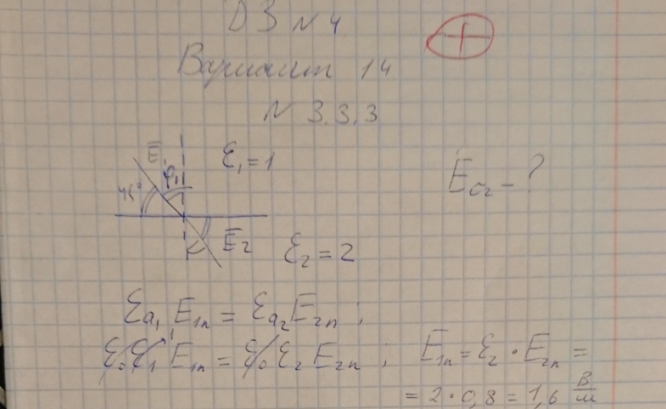 ДЗ №4
Вариант 14
№ 3.3.3
E₁ φ₁ ε₁ = 1
45°
E₂ ε₂ = 2
εa₁ E₁ₙ = εa₂ E₂ₙ ;
ε₀ε₁ E₁ₙ = ε₀ ε₂ E₂ₙ ; E₁ₙ = ε₂ · E₂ₙ =
= 2 · 0,8 = 1,6 В/м